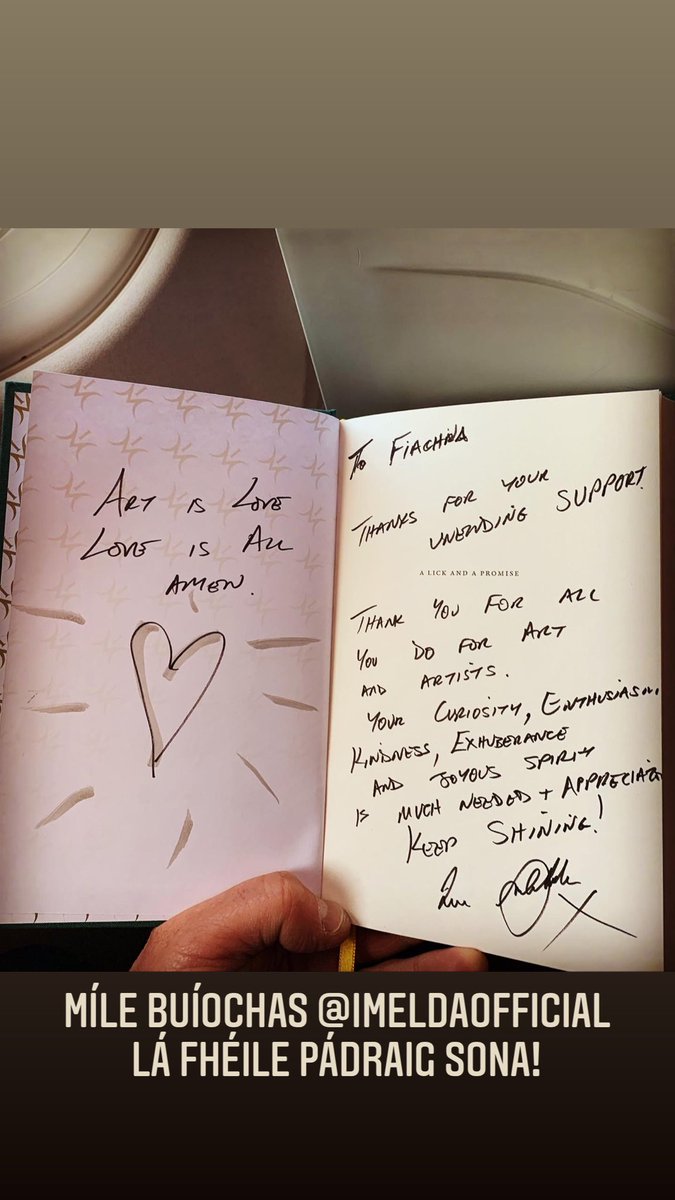 ART IS LOVE
LOVE IS ALL
AMEN.
TO FIACHNA
THANKS FOR YOUR
UNENDING SUPPORT.
A LICK AND A PROMISE
THANK YOU FOR ALL
YOU DO FOR ART
AND ARTISTS.
YOUR CURIOSITY, ENTHUSIASM,
KINDNESS, EXHUBERANCE
AND JOYOUS SPIRIT
IS MUCH NEEDED + APPRECIATED
KEEP SHINING!
Love Imelda X
MÍLE BUÍOCHAS @IMELDAOFFICIAL
LÁ FHÉILE PÁDRAIG SONA!